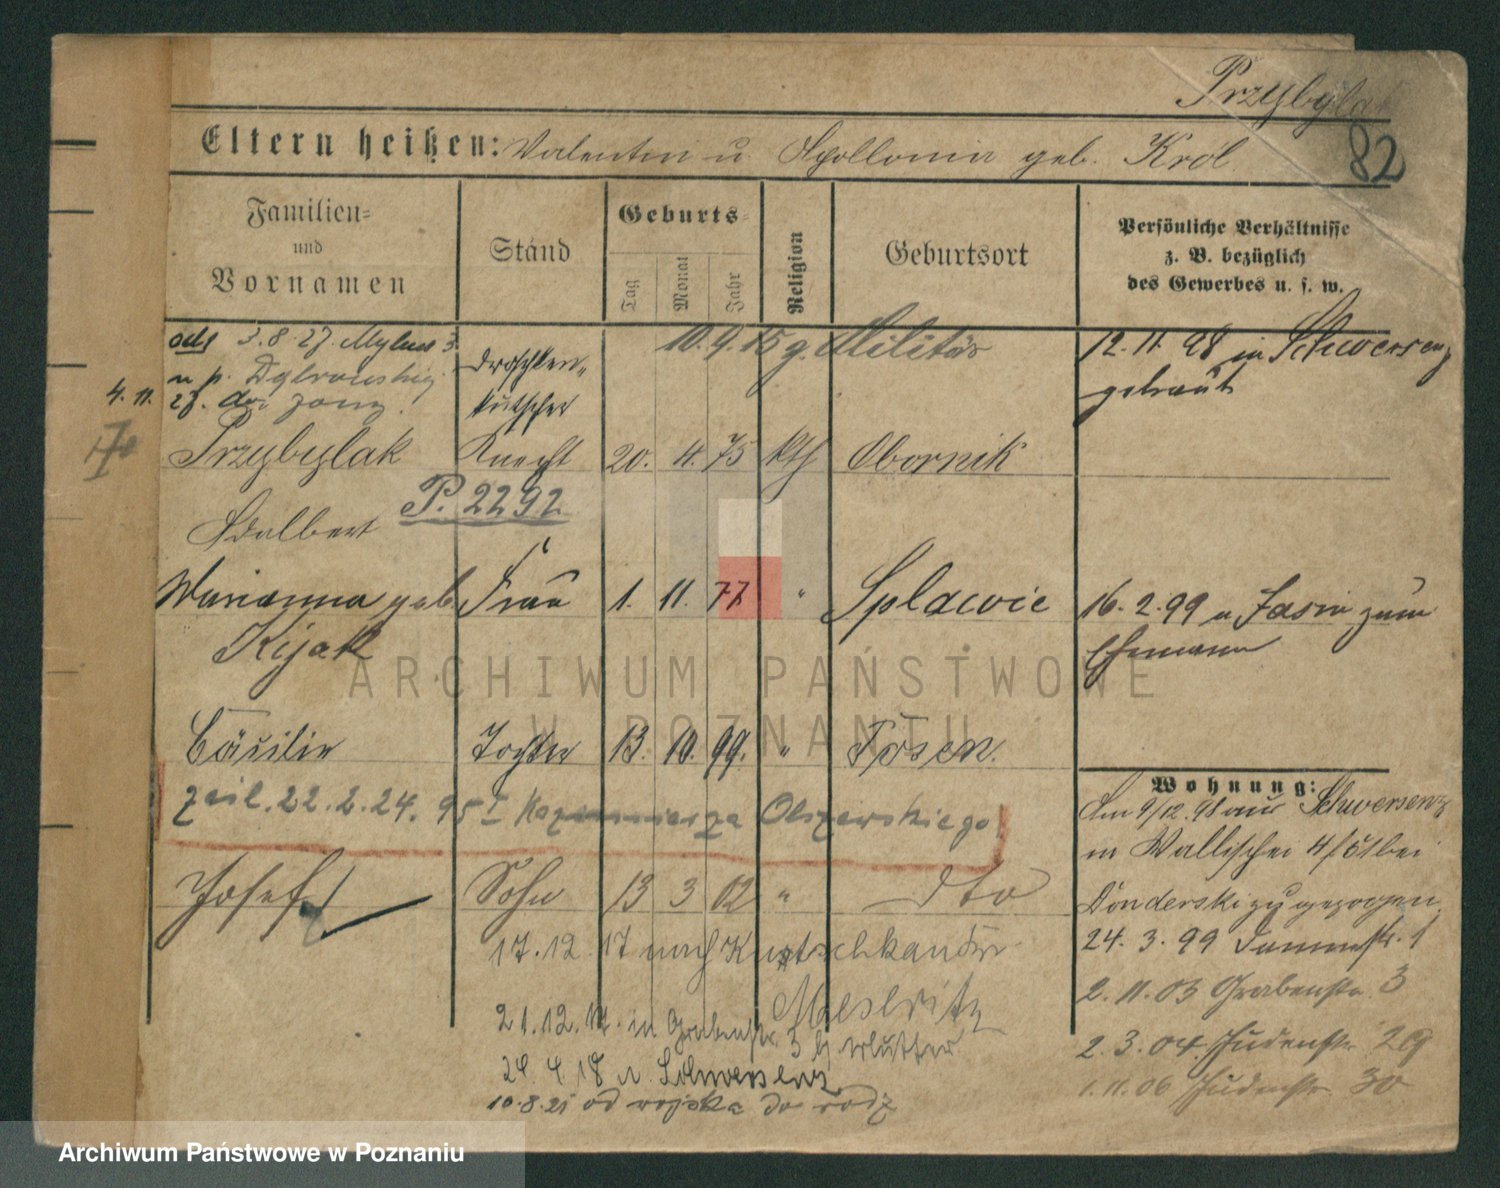 Przybylak
82
Eltern heißen: Valentin u. Apollonia geb. Król
Familien- und Vornamen
Stand
Geburts-
Tag
Monat
Jahr
Religion
Geburtsort
Persönliche Verhältnisse
z. B. bezüglich
des Gewerbes u. s. w.
3.8.27.
Droschken-
kutscher
10.9.15 z. Militär
12.11.98 in Schwersenz
getraut
4.11.
27.
Przybylak Knecht 20. 4. 75 kth Obornik
P. 2292
Adalbert
Marianna geb. Frau 1. 11. 77 " Splawie
Kijak
16.2.99 v. Jasin zum
Ehemann
ARCHIWUM PAŃSTWOWE
W POZNANIU
Cäcilie Tochter 13. 10. 99. " Posen.
22.2.24. 95 I Kazimierza Olszewskiego
Josef Sohn 13 3 02 " dto
17.12.17 nach
Meseritz
21.12.17. in Grabenstr. 3 bj Mutter
24.4.18 n. Schwersenz
10.8.21 od wojska do rodz
Wohnung:
Am 9/12.98 aus Schwersenz
in Wallischei 4/5 bei
Donderski zugezogen
24.3.99 Dammstr. 1
2.11.03 Grabenstr. 3
2.3.04. Judenstr. 29
1.11.06 Judenstr. 30
Archiwum Państwowe w Poznaniu